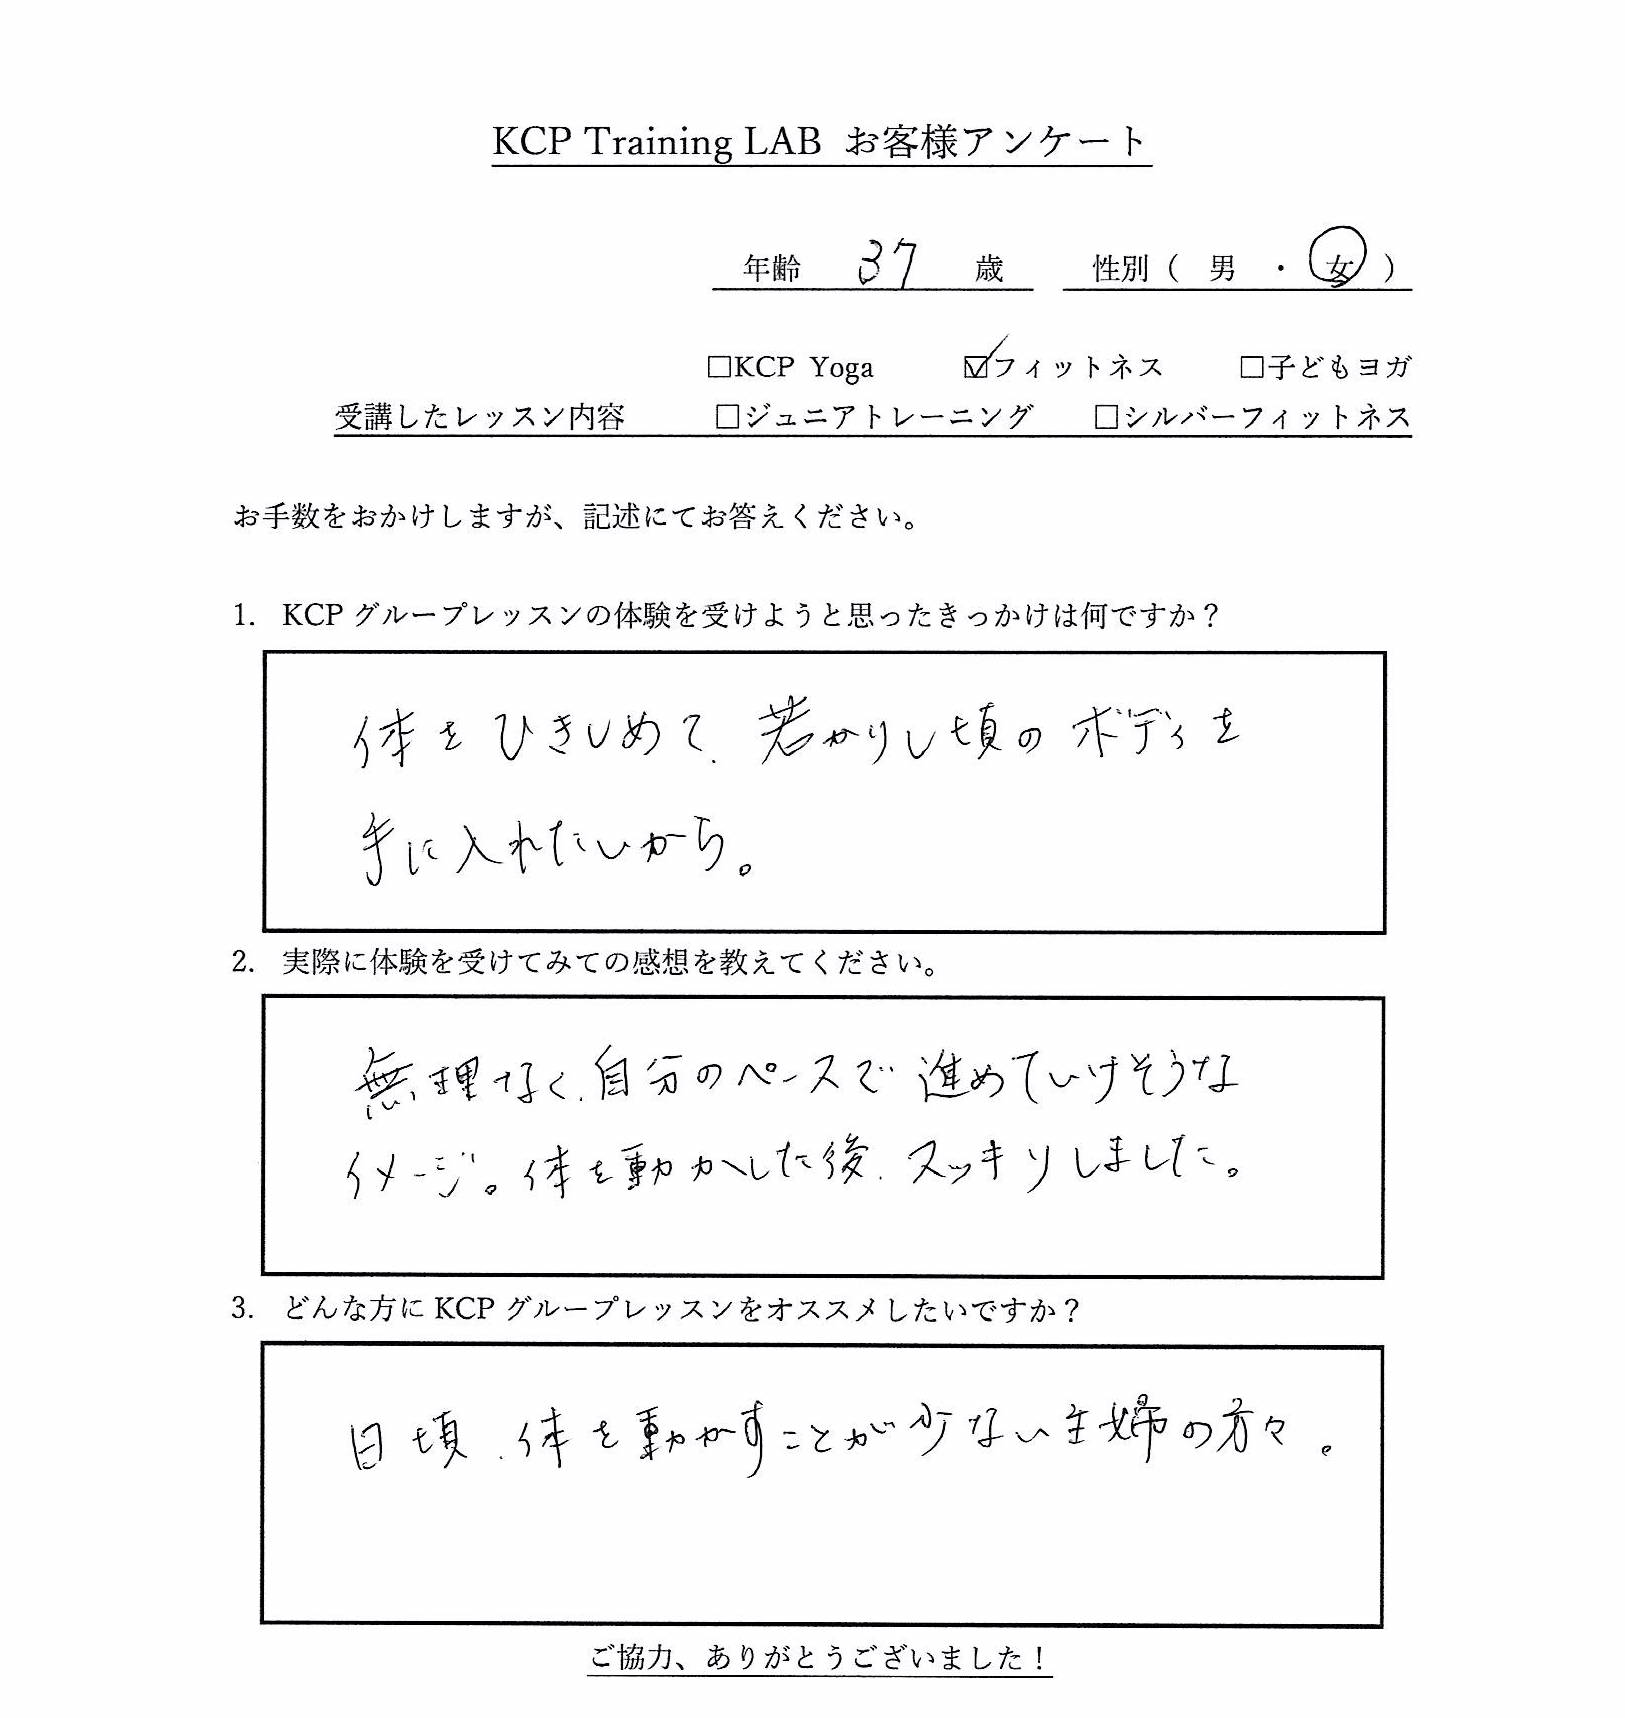 KCP Training LAB お客様アンケート
年齢 37 歳 性別（ 男 ・ 女 ）
□KCP Yoga ☑フィットネス □子どもヨガ
受講したレッスン内容 □ジュニアトレーニング □シルバーフィットネス
お手数をおかけしますが、記述にてお答えください。
1. KCP グループレッスンの体験を受けようと思ったきっかけは何ですか？
体をひきしめて、若かりし頃のボディを
手に入れたいから。
2. 実際に体験を受けてみての感想を教えてください。
無理なく、自分のペースで進めていけそうな
イメージ。体を動かした後、スッキリしました。
3. どんな方に KCP グループレッスンをオススメしたいですか？
日頃、体を動かすことが少ない主婦の方々。
ご協力、ありがとうございました！